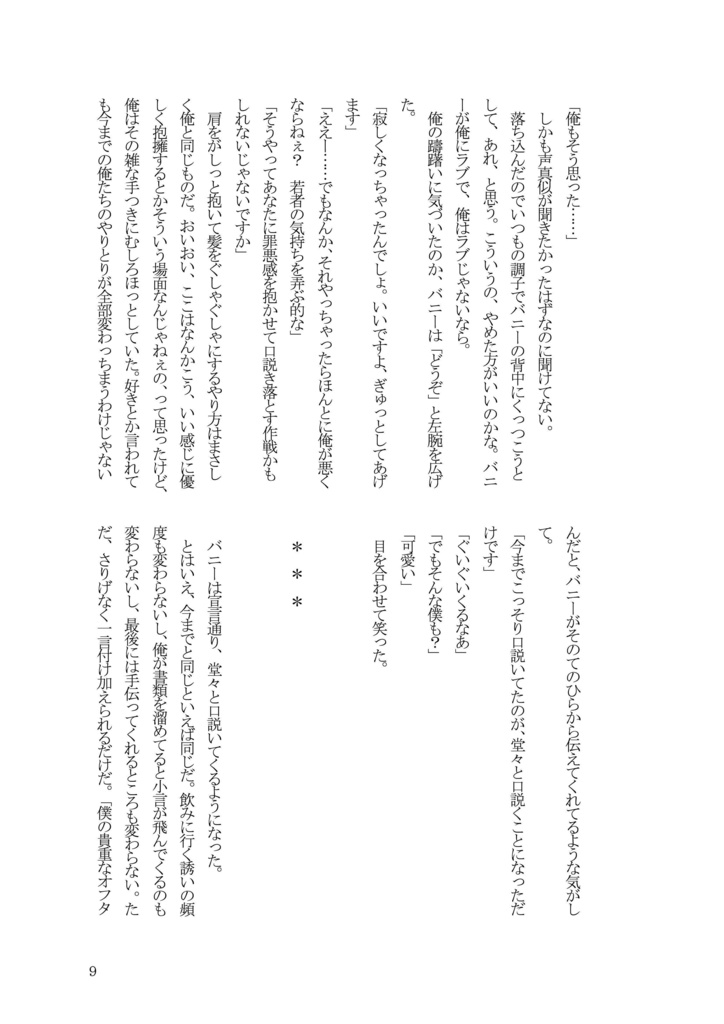 「俺もそう思った……」
　しかも声真似が聞きたかったはずなのに聞けてない。
　落ち込んだのでいつもの調子でバニーの背中にくっつこうと
して、あれ、と思う。こういうの、やめた方がいいのかな。バニ
ーが俺にラブで、俺はラブじゃないなら。
　俺の躊躇いに気づいたのか、バニーは「どうぞ」と左腕を広げ
た。
「寂しくなっちゃったんでしょ。いいですよ、ぎゅっとしてあげ
ます」
「ええー……でもなんか、それやっちゃったらほんとに俺が悪く
ならねぇ？　若者の気持ちを弄ぶ的な」
「そうやってあなたに罪悪感を抱かせて口説き落とす作戦かも
しれないじゃないですか」
　肩をがしっと抱いて髪をぐしゃぐしゃにするやり方はまさし
く俺と同じものだ。おいおい、ここはなんかこう、いい感じに優
しく抱擁するとかそういう場面なんじゃねぇの、って思ったけど、
俺はその雑な手つきにむしろほっとしていた。好きとか言われて
も今までの俺たちのやりとりが全部変わっちまうわけじゃない
んだと、バニーがそのてのひらから伝えてくれてるような気がし
て。
「今までこっそり口説いてたのが、堂々と口説くことになっただ
けです」
「ぐいぐいくるなあ」
「でもそんな僕も？」
「可愛い」
　目を合わせて笑った。
＊　＊　＊
　バニーは宣言通り、堂々と口説いてくるようになった。
　とはいえ、今までと同じといえば同じだ。飲みに行く誘いの頻
度も変わらないし、俺が書類を溜めてると小言が飛んでくるのも
変わらないし、最後には手伝ってくれるところも変わらない。た
だ、さりげなく一言付け加えられるだけだ。「僕の貴重なオフタ
9